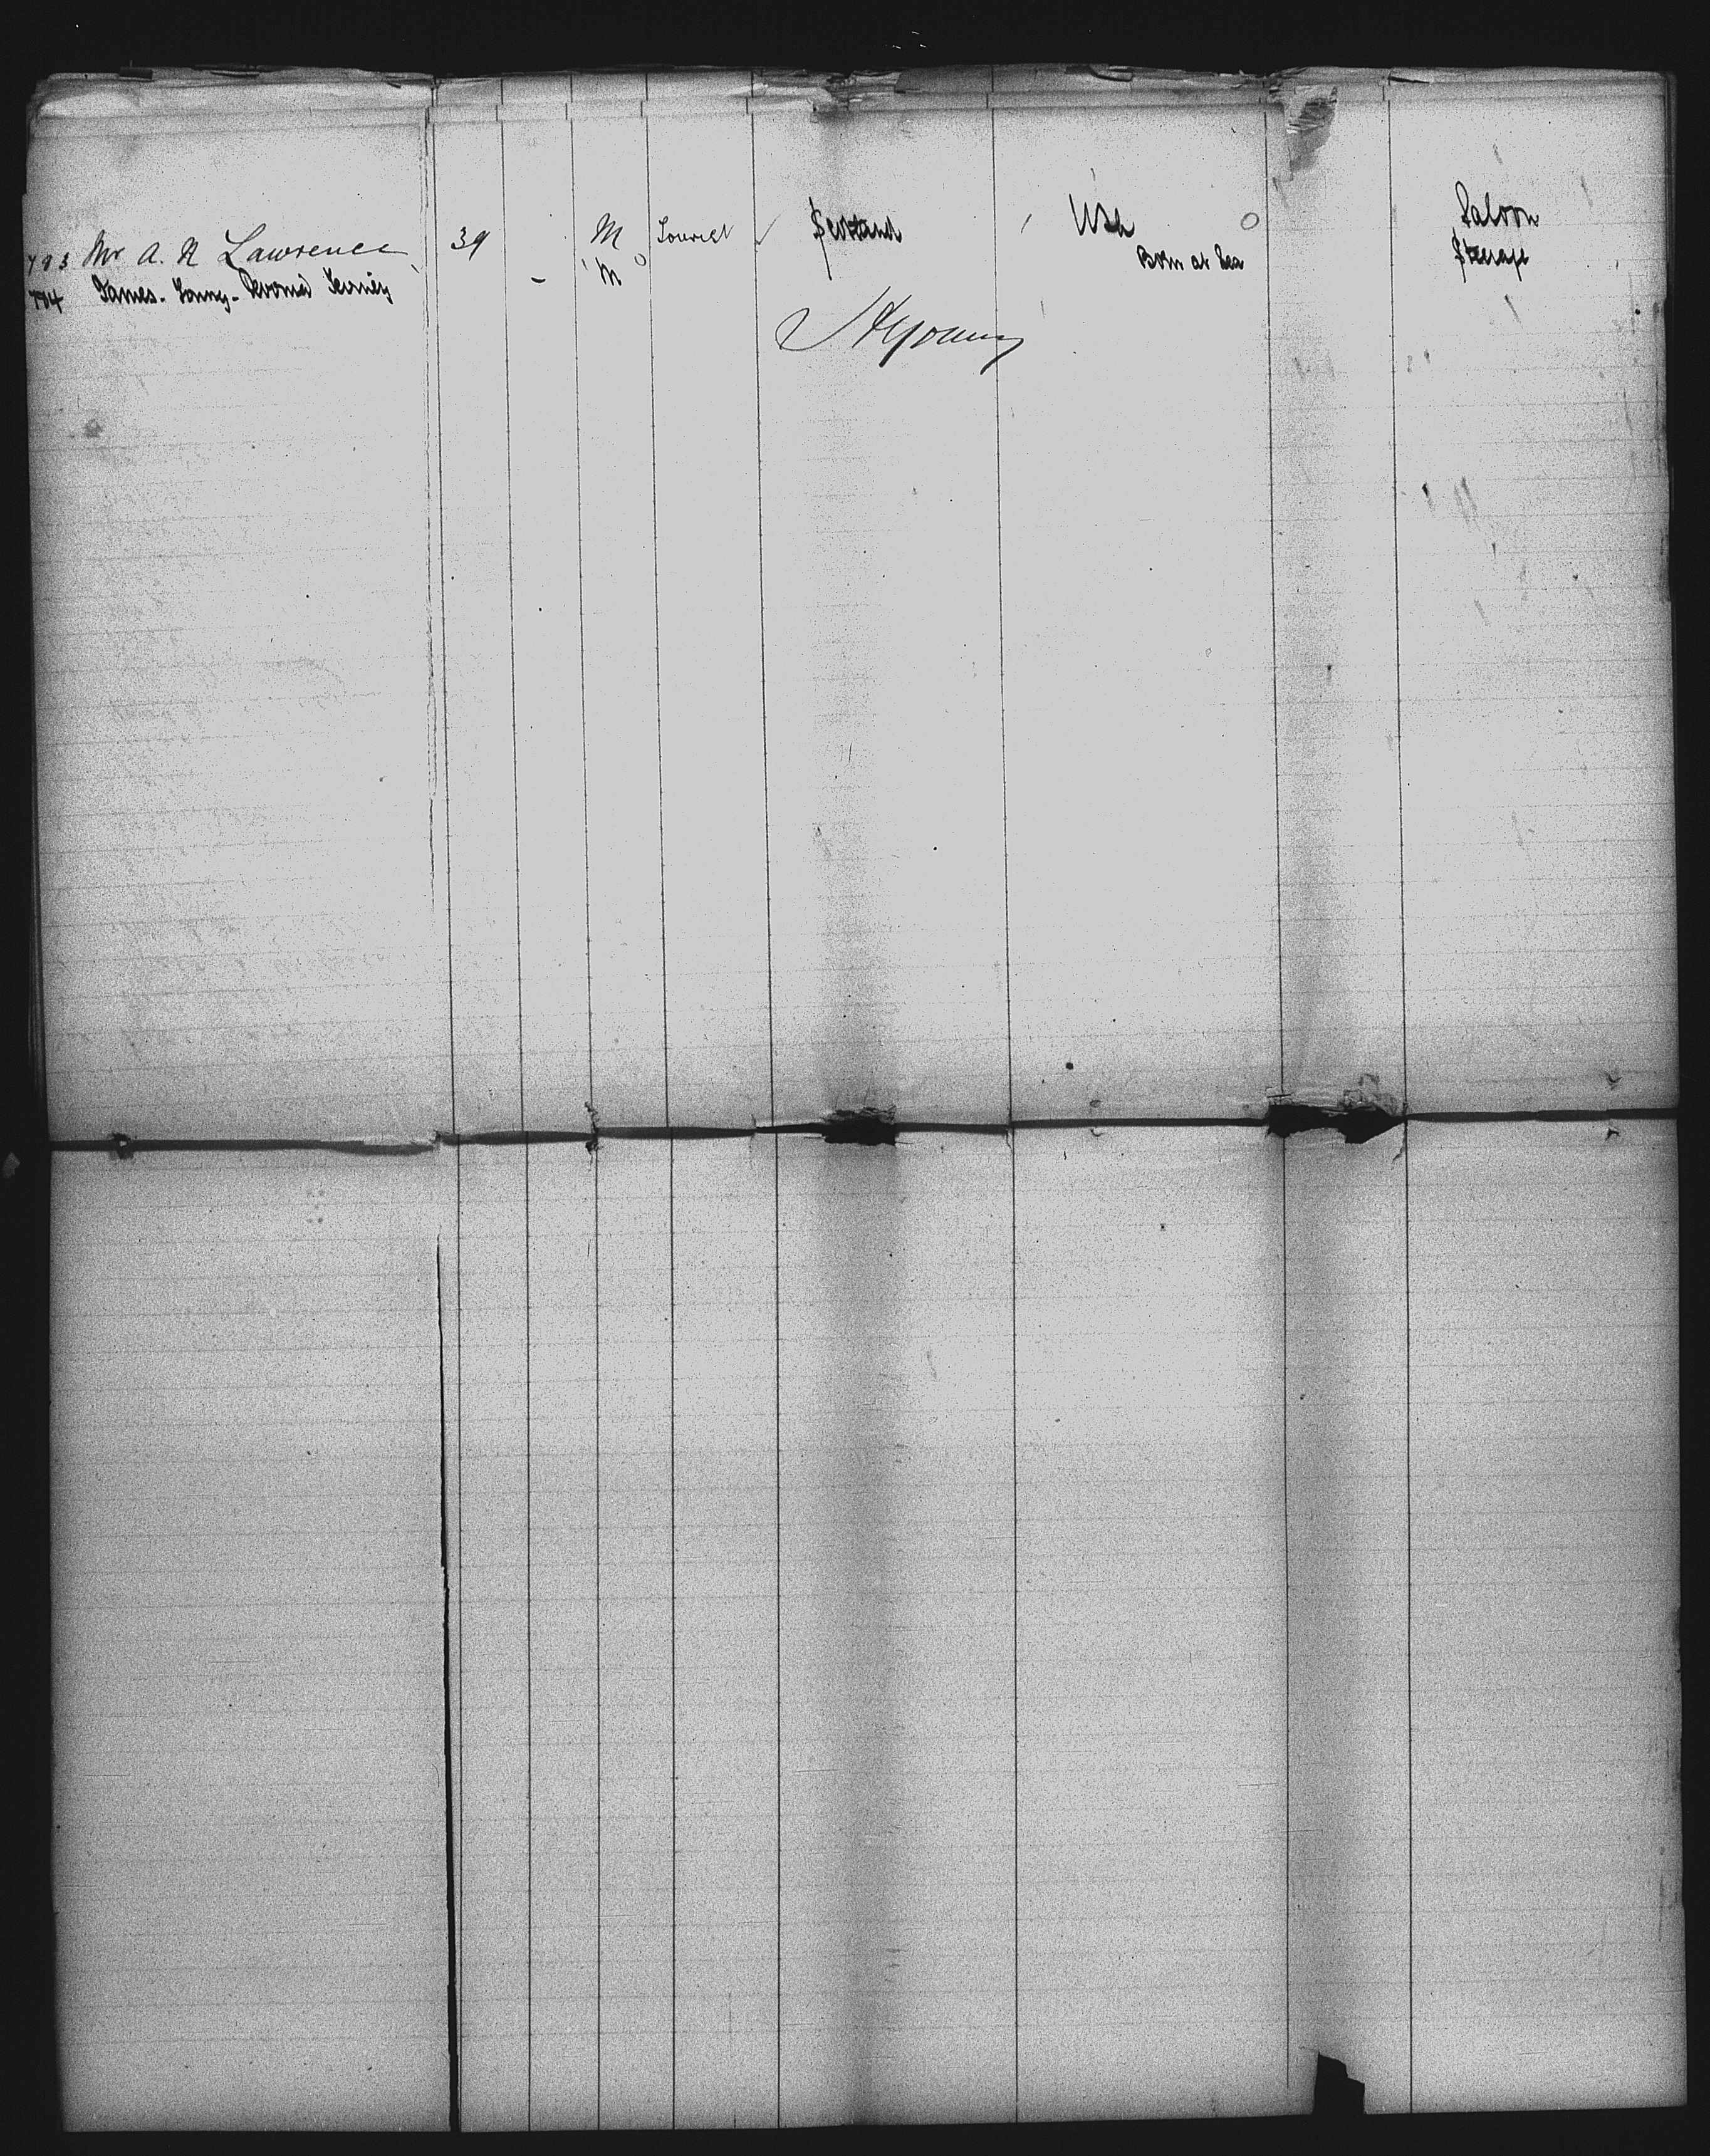 793 Mr A. N Lawrence 39 M Tourist Scotland USA Saloon
794 James. Young. Tierney - M Born at Sea Steerage
Young